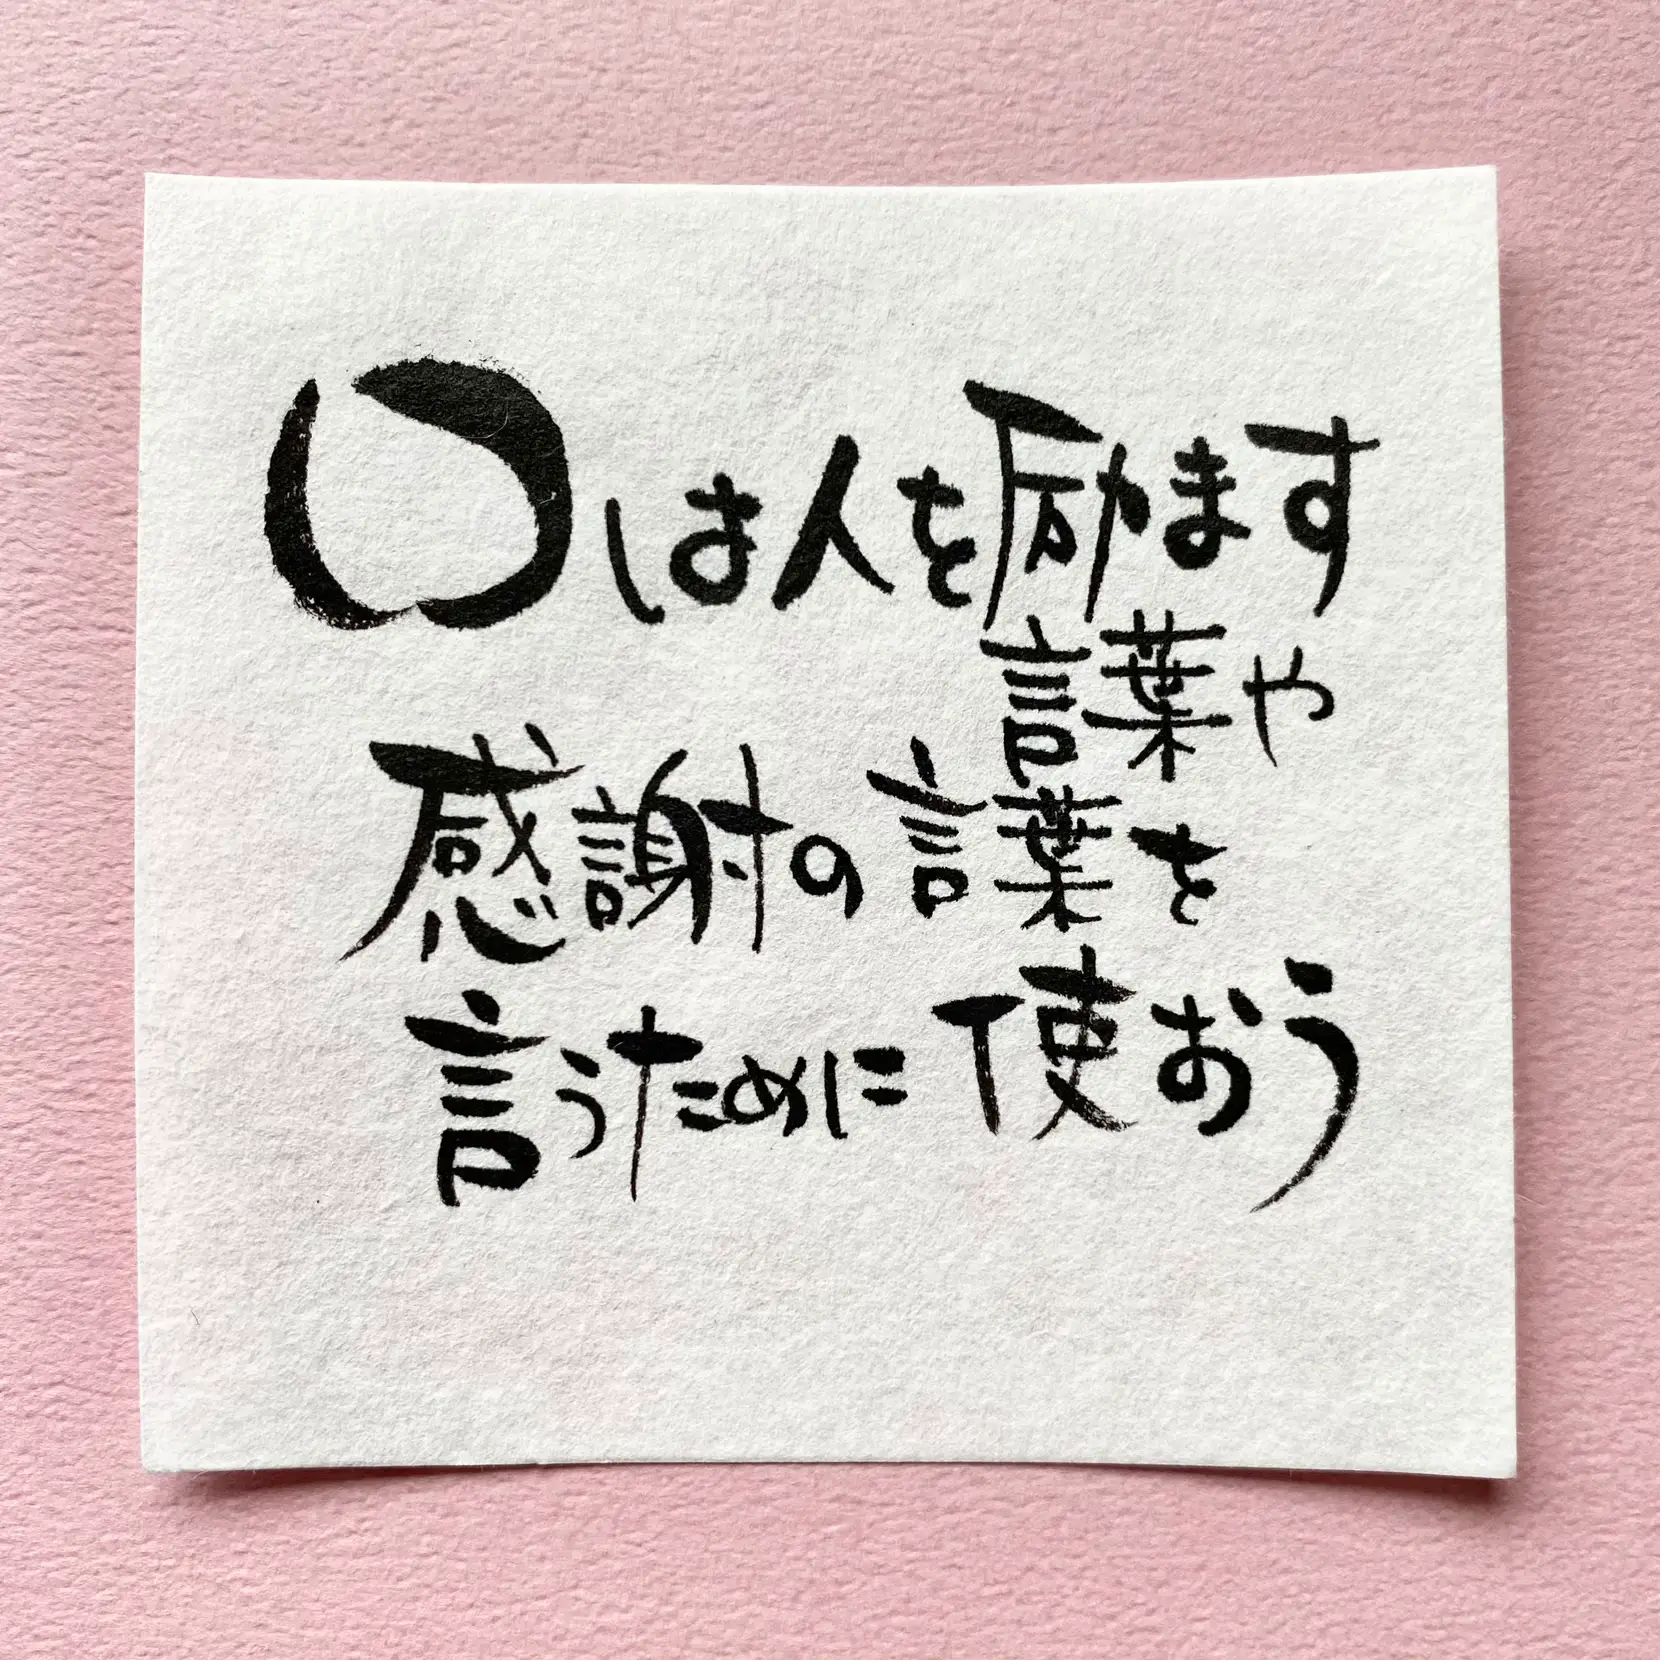 口は人を励ます
言葉や
感謝の言葉を
言うために使おう